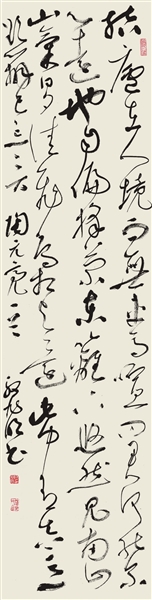 結廬在人境而無車馬喧問君何能爾
心遠地自偏採菊東籬下悠然見南山
山氣日夕佳飛鳥相與還此中有真意
欲辨已忘言 陶元亮 書